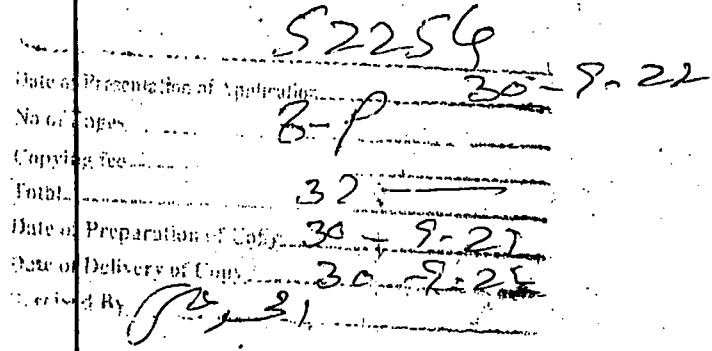 52256
Date of Presentation of Application 30-9-22
No of Pages 8-P
Copying fee
Total 32
Date of Preparation of Copy 30-9-22
Date of Delivery of Copy 30-9-22
By